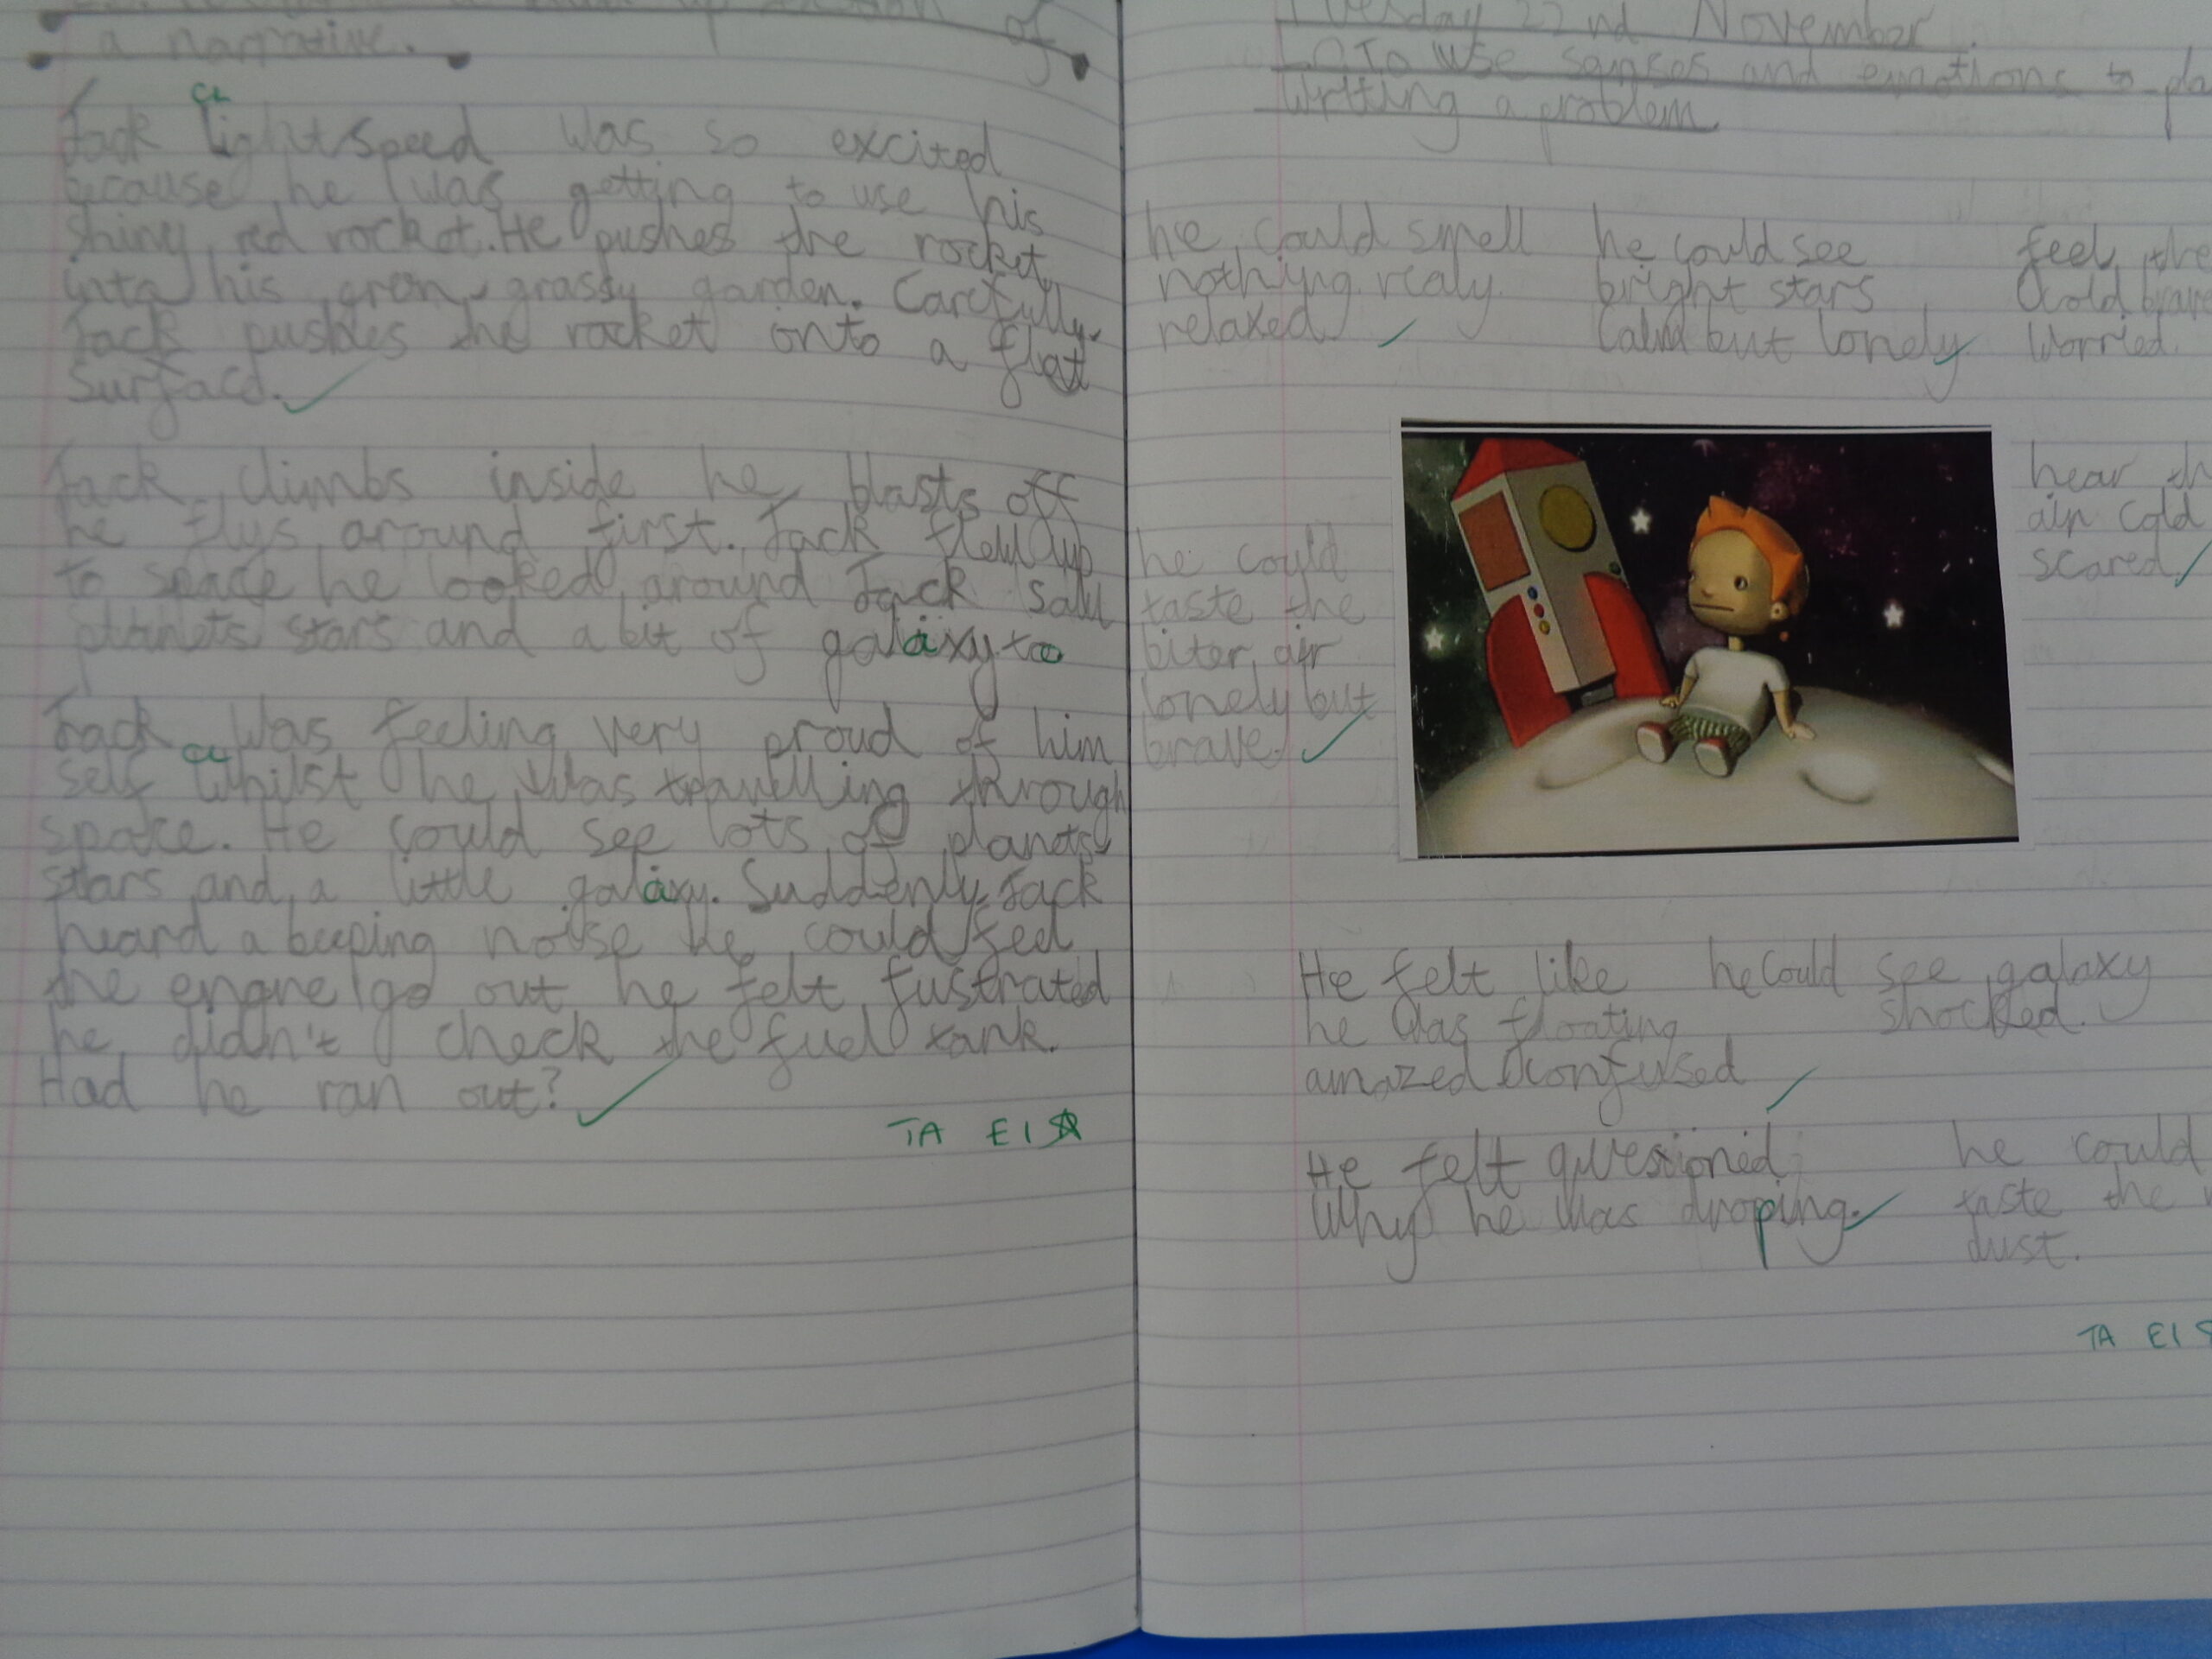 a narrative. of
CL
Jack lightspeed was so excited
because he was getting to use his
shiny red rocket. He pushes the rocket
into his gren grassy garden. Carefully,
Jack pushes the rocket onto a flat
surface.
Jack climbs inside he blasts off
he flys around first. Jack flew up
to space he looked around Jack saw
planets stars and a bit of galaxy too
Jack was feeling very proud of him
CL
self whilst he was travelling through
space. He could see lots of planets
stars and a little galaxy. Suddenly, Jack
heard a beeping noise he could feel
the engne go out he felt fustrated
he didn't check the fuel tank.
Had he ran out?
TA EI
Tuesday 22nd November
LO To use senses and emotions to pla
writing a problem
he could smell
nothing realy
relaxed
he could see
bright stars
Calm but lonely
feel the
cold
Worried.
he could
taste the
biter air
lonely but
brave.
hear th
air cold
scared
He felt like
he was floating
amazed confused
he could see galaxy
shocked.
He felt questioned
Why he was droping.
he could
taste the
dust.
TA EI